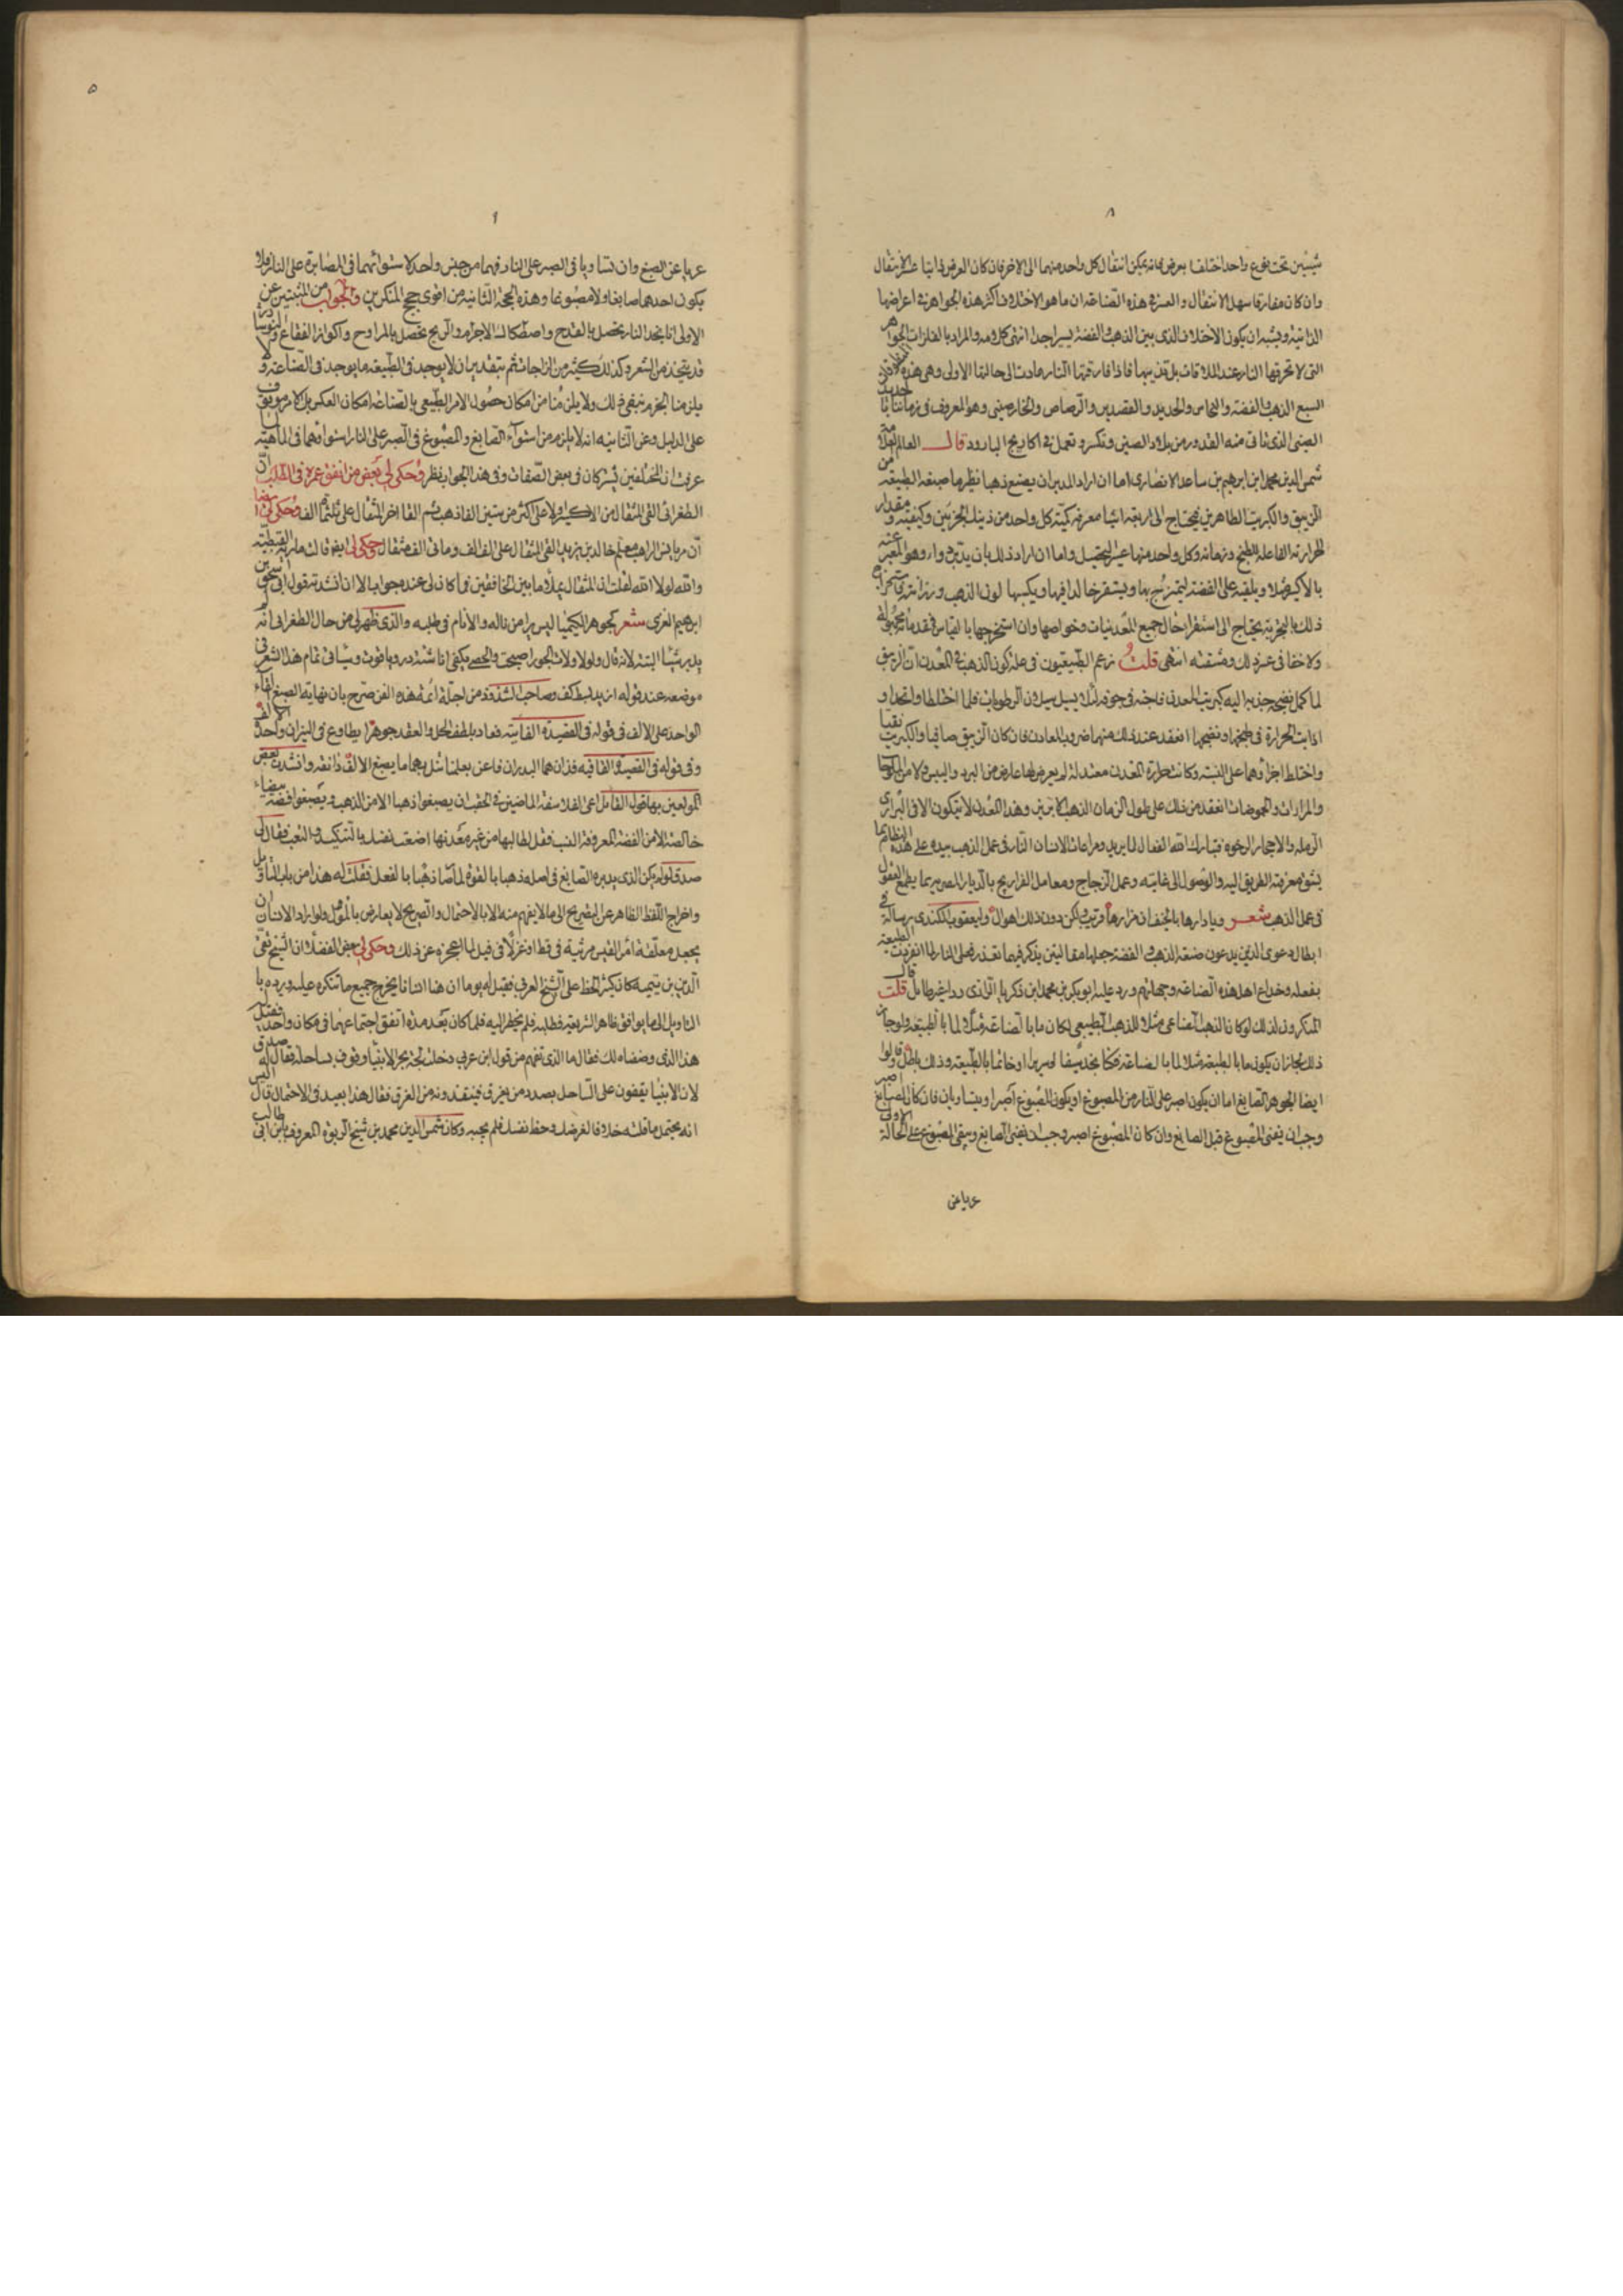 ٨
شيئين تحت نوع واحد اختلفا بعرض فانه يمكن انتقال كل واحد منهما الى الاخر فان كان العرض ذاتيا عسر الانتقال
وان كان مفارقا سهل الانتقال والعسر في هذه الصناعة ان ما هو الاختلاف اكثر هذه الجواهر في اعراضها
الذاتية ويشبه ان يكون الاختلاف الذي بين الذهب والفضة يسير اجدا انتهى كلامه والمراد بالفلزات الجواهر
التي لا تحرقها النار عند الملاقات بل تذيبها فاذا فارقتها النار عادت الى حالتها الاولى وهي هذه الافراد
السبع الذهب والفضة والنحاس والحديد والقصدير والرصاص والخارصيني وهو المعروف في زماننا بالحديد
الصيني الذي تأتي منه القدور من بلاد الصين وتكسر وتعمل في اكاريج البارود قال العالم العلامة
شمس الدين محمد ابن ابرهيم بن ساعد الانصاري اما ان اراد المدبر ان يصنع ذهبا نظير ما صنعته الطبيعة من
الزيبق والكبريت الطاهرين فيحتاج الى اربعة اشيا معرفة كمية كل واحد من ذينك الجزئين وكيفيته ومقدار
الحرارة الفاعلة للطبخ وزمانه وكل واحد منها عسر التحصيل واما ان اراد ذلك بان يدبر دواء وهو المعبر عنه
بالاكسير مثلا ويلقيه على الفضة ليمتزج بها ويستقر خالدا فيها ويكسبها لون الذهب ورزانته فاستخراج
ذلك بالتجربة يحتاج الى استقراء حال جميع المعدنيات وخواصها وان استخرجها بالقياس فمقدماته مجهولة
ولا خفا في عسر ذلك ومشقته انتهى قلت زعم الطبيعيون في علة كون الذهب في المعدن ان الزيبق
لما كمل نضجه جذبه اليه كبريت المعدن فاجنه في جوفه لئلا يسيل سيلان الرطوبات فلما اختلطا واتحدا و
اذابت الحرارة في طبخهما ونضجهما انعقد عند ذلك منهما ضروب المعادن فان كان الزيبق صافيا والكبريت نقيا
واختلط اجزاؤهما على النسبة وكانت حرارة المعدن معتدلة لم يعرض لها عارض من البرد واليبس ولا من الملوحا
والمرارات والحموضات انعقد من ذلك على طول الزمان الذهب الابريز وهذا المعدن لا يتكون الا في البراري
الرملة والاحجار الرخوة فتبارك الله الفعال لما يريد ومراعات الانسان النار في عمل الذهب بيده على هذه النظام مما
يشق معرفة الطريق اليه والوصول الى غايته وعمل الزجاج ومعامل الفراريج بالديار المصرية مما يطمع العقول
في عمل الذهب شعر ويا دارها بالخيف ان مزارها قريب ولكن دون ذلك اهوال وليعقوب الكندي رسالة في
ابطال دعوى الذين يدعون صنعة الذهب والفضة جعلها مقالتين يذكر فيهما تعذر فعل الناس لما انفردت الطبيعة
بفعله وخداع اهل هذه الصناعة وجهالتهم ورد عليه ابو بكر بن محمد ابن زكريا الرازي ردا غير طايل قلت قال
المنكرون لذلك لو كان الذهب الصناعي مثلا للذهب الطبيعي لكان ما بالصناعة مثلا لما بالطبيعة ولو جاز
ذلك لجاز ان يكون ما بالطبيعة مثلا لما بالصناعة فكنا نجد سيفا او سريرا او خاتما بالطبيعة وذلك باطل وقالوا
ايضا الجوهر الصابغ اما ان يكون اصبر على النار من المصبوغ او يكون المصبوغ اصبر او يتساويان فان كان الصابغ اصبر
وجب ان يفنى المصبوغ قبل الصابغ وان كان المصبوغ اصبر وجب ان يفنى الصابغ ويبقى المصبوغ على الحالة الاولى
عريا عن
٥
٩
عريا عن الصبغ وان تساويا في الصبر على النار فهما من جنس واحد لاستوائهما في المصابرة على النار فلا
يكون احدهما صابغا ولا مصبوغا وهذه الحجة الثانية من اقوى حجج المنكرين والجواب من المثبتين عن
الاولى انا نجد النار تحصل بالقدح واصطكاك الاجرام والريح تحصل بالمراوح واكواز الفقاع والنوشادر
قد يتخذ من الشعر وكذلك كثير من الزاجات ثم بتقدير ان لا يوجد في الطبيعة ما يوجد في الصناعة لا
يلزمنا الجزم بنفي ذلك ولا يلزمنا من امكان حصول الامر الطبيعي بالصناعة امكان العكس بل الامر موقوف
على الدليل وعن الثانية انه لا يلزم من استواء الصابغ والمصبوغ في الصبر على النار استواؤهما في الماهية لما
عرفت ان المختلفين يشتركان في بعض الصفات وفي هذا الجواب نظر وحكى لي بعض من انفق عمره في الطلب ان
الطغرائي القى المثقال من الاكسير اولا على اكثر من ستين الفا ذهب ثم القا اخر المثقال على ثلثمائة الف وحكى لي ايضا
ان مريانس الراهب معلم خالد بن يزيد القى المثقال على الف الف ومائتي الف مثقال وحكى لي ايضا قالت مارية القبطية
والله لولا الله لقلت ان المثقال يملأ ما بين الخافقين فما كان لي عنده جواب الا ان انشدته قول ابي اسحق بن
ابرهيم الغزي شعر كجوهر الكيميا ليس يرا من ناله والانام في طلبه والذي ظهر لي من حال الطغرائي انه لم
يدبر شيئا البتة لانه قال ولولا ولات الجور اصبحت والحصى بكفي انا شئت در وياقوت وسيأتي تمام هذا الشعر في
موضعه عند قوله اريد بسطة كف وصاحب الشذور من اجلة ائمة هذه الفن صرح بان نهاية الصبغ القاء
الواحد على الالف في قوله في القصيدة الفائية فعاد بلطف الحل والعقد جوهرا يطاوع في النيران واحده الالف
وفي قوله في القصيدة القافية فذان هما البدران فاعن بعلمنا تنل بهما ما يصبغ الالف دانقه وانشدت بعض
المولعين بها قول القائل اعي الفلاسفة الماضين في الحقب ان يصبغوا ذهبا الا من الذهب ويصبغوا فضة بيضاء
خالصة الا من الفضة المعروفة النسب فقل لطالبها من غير معدنها اضعت نفسك بالتنكيد والتعب فقال لي
صدقا ولم يكن الذي يدبره الصابغ في اصله ذهبا بالقوة لما صار ذهبا بالفعل فقلت له هذا من باب التاويل
واخراج اللفظ الظاهر عن الصريح الى ما لا يفهم منه الا بالاحتمال والصريح لا يعارض بالمؤول ولو اراد الانسان ان
يجعل معلقة امرا القيس مرثية في قط او غزلا في فيل لما اعجزه عن ذلك وحكى لي بعض الفضلا ان الشيخ تقي
الدين بن تيمية كان كثير الحط على الشيخ العربي فقيل له يوما ان هنا انسانا يخرج جميع ما تنكره عليه ويرده با
التاويل الى ما يوافق ظاهر الشريعة فطلبه فلم يحضر اليه فلما كان بعد مدة اتفق اجتماعهما في مكان واحد فقيل له
هذا الذي وصفناه لك فقال ما الذي تفهم من قول ابن عربي دخلت لجة بحر الانبيا وقوف بساحله فقال له صدق
لان الانبيا يقفون على الساحل بصدد من يغرق فينقذونه من الغرق فقال هذا بعيد في الاحتمال قال اليس
انه يحتمل ما قلته خلاف الغرضك وحظ نفسك فلم يجبه وكان شمس الدين محمد بن شيخ الربوة المعروف بابن ابي طالب